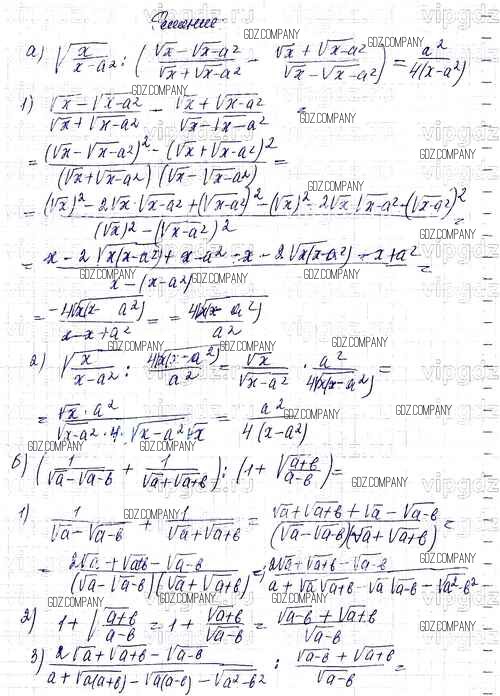 Решение
а) √(x/(x-a²)) : ( (√x - √(x-a²))/(√x + √(x-a²)) - (√x + √(x-a²))/(√x - √(x-a²)) ) = a²/(4(x-a²))
1) (√x - √(x-a²))/(√x + √(x-a²)) - (√x + √(x-a²))/(√x - √(x-a²)) =
= ((√x - √(x-a²))² - (√x + √(x-a²))²)/((√x + √(x-a²))(√x - √(x-a²))) =
= ((√x)² - 2√x·√(x-a²) + (√(x-a²))² - (√x)² - 2√x√(x-a²) - (√(x-a²))²)/((√x)² - (√(x-a²))²) =
= (x - 2√(x(x-a²)) + x - a² - x - 2√(x(x-a²)) - x + a²)/(x - (x-a²)) =
= (-4√(x(x-a²)))/(x-x+a²) = = (4√(x(x-a²)))/a²
2) √(x/(x-a²)) : (4√(x(x-a²)))/a² = √x/√(x-a²) · a²/(4√(x(x-a²))) =
= (√x · a²)/(√(x-a²) · 4 · √(x-a²) · √x) = a²/(4(x-a²))
в) ( 1/(√a - √(a-в)) + 1/(√a + √(a+в)) ) : (1 + √((a+в)/(a-в))) =
1) 1/(√a - √(a-в)) + 1/(√a + √(a+в)) = (√a + √(a+в) + √a - √(a-в))/((√a - √(a-в))(√a + √(a+в))) =
= (2√a + √(a+в) - √(a-в))/((√a - √(a-в))(√a + √(a+в))) = (2√a + √(a+в) - √(a-в))/(a + √a√(a+в) - √a√(a-в) - √(a²-в²))
2) 1 + √((a+в)/(a-в)) = 1 + √(a+в)/√(a-в) = (√(a-в) + √(a+в))/√(a-в)
3) (2√a + √(a+в) - √(a-в))/(a + √(a(a+в)) - √(a(a-в)) - √(a²-в²)) : (√(a-в) + √(a+в))/√(a-в) =
GDZ.COMPANY
vipgdz